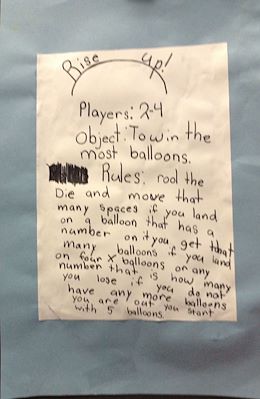 Rise up!
Players: 2-4
Object: To win the
most balloons.
Rules: rod the
Die and move that
many spaces if you land
on a balloon that has a
number on it you get that
many balloons if you land
on four x balloons or any
number that is how many
you lose if you do not
have any more balloons
you are out you start
with 5 balloons.